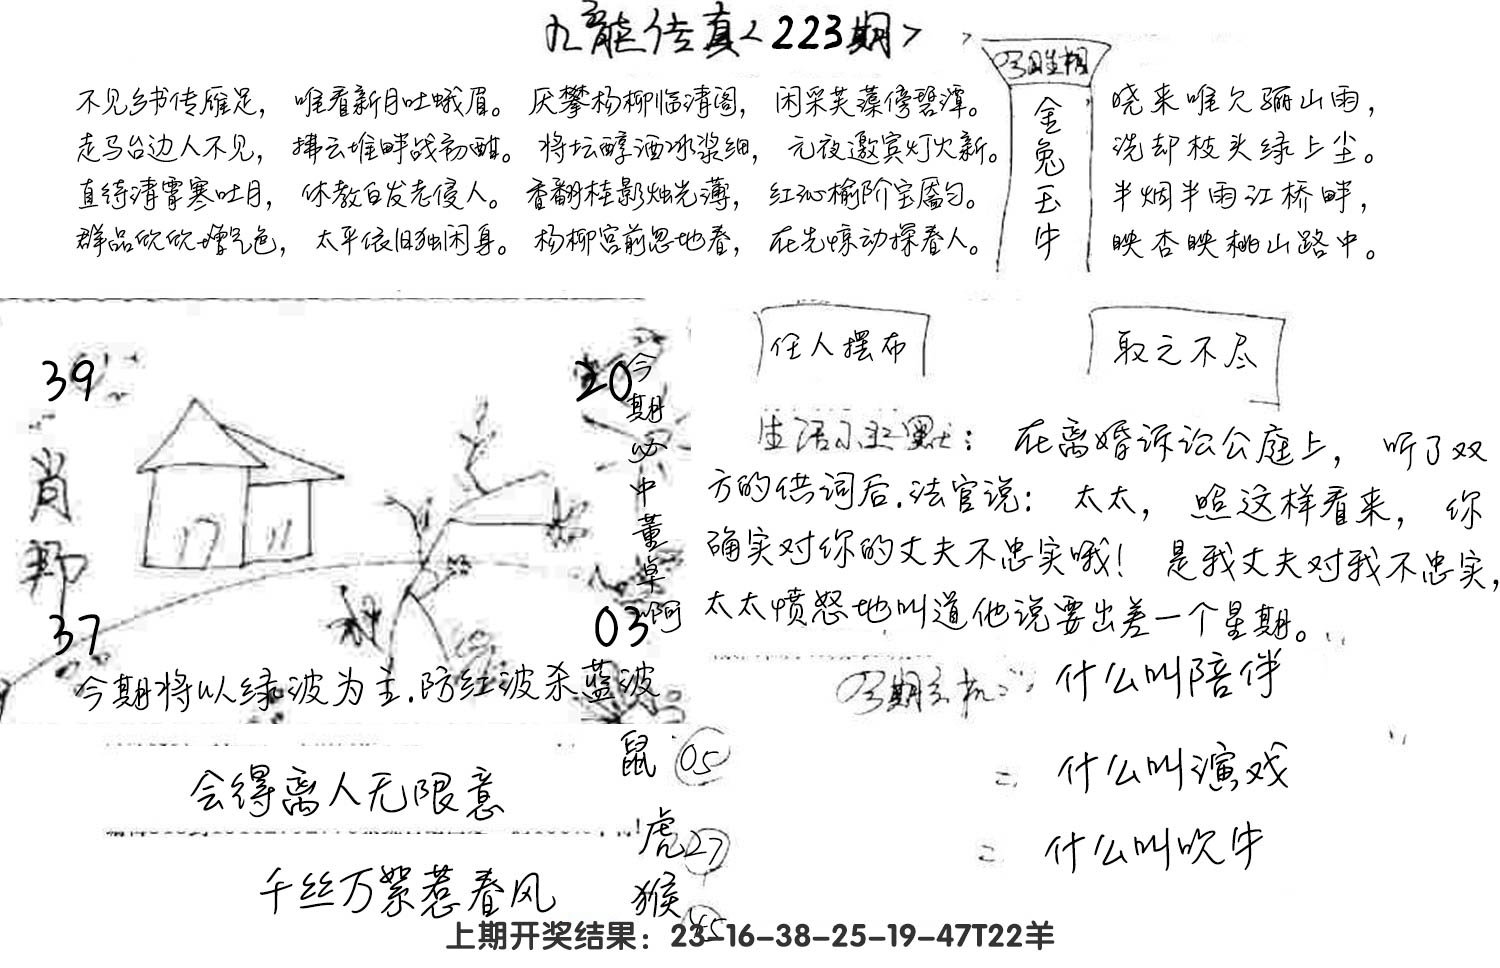 九龙传真<223期>
不见乡书传雁足，唯看新月吐蛾眉。厌攀杨柳临清阁，闲采芙蕖傍碧潭。
走马台边人不见，拂云堆畔战初酣。将坛醇酒冰浆细，元夜邀宾灯火新。
直待清霄寒吐月，休教白发老侵人。香翻桂影烛光薄，红沁榆阶宝靥匀。
群品欣欣增气色，太平依旧独闲身。杨柳宫前忽地春，在先惊动探春人。
金兔玉牛
晓来唯欠骊山雨，
洗却枝头绿上尘。
半烟半雨江桥畔，
映杏映桃山路中。
任人摆布
取之不尽
39
20
肖
37
03
今期必中董卓啊
今期将以绿波为主.防红波杀蓝波
生活小幽默：在离婚诉讼公庭上，听了双
方的供词后.法官说：太太，照这样看来，你
确实对你的丈夫不忠实哦！是我丈夫对我不忠实，
太太愤怒地叫道他说要出差一个星期。
什么叫陪伴
什么叫演戏
什么叫吹牛
会得离人无限意
千丝万絮惹春风
鼠 05
虎 27
猴 45
上期开奖结果：23-16-38-25-19-47T22羊